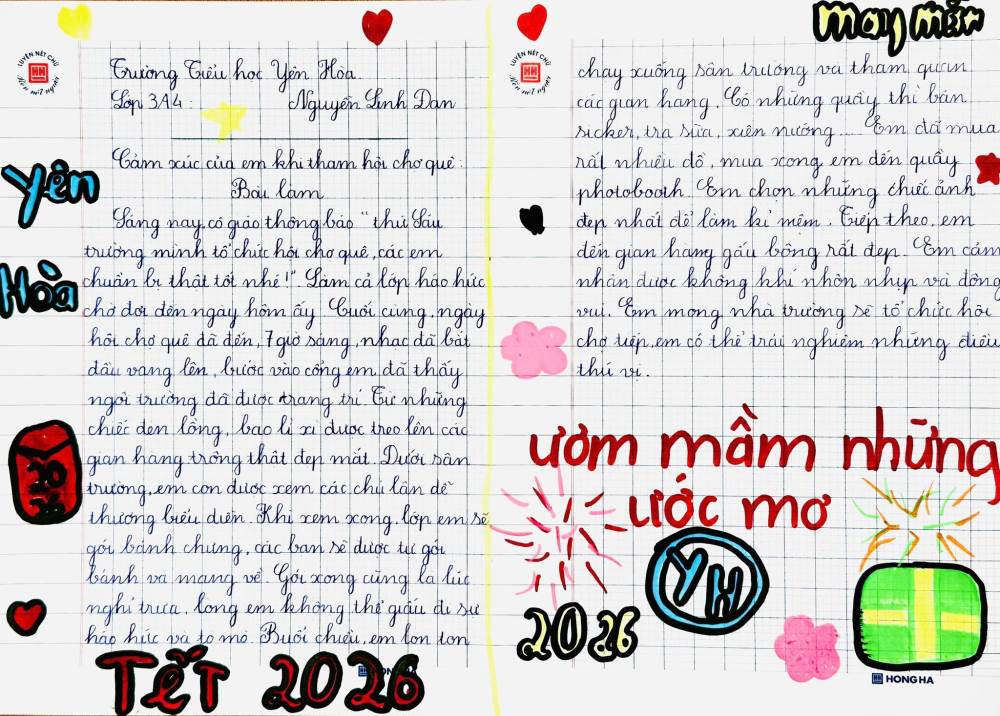 may mắn
LUYỆN NÉT CHỮ
HH
Trường Tiểu học Yên Hòa
Lớp 3A4 :
Nguyễn Linh Đan
Cảm xúc của em khi tham hội chợ quê :
Bài làm
Sáng nay, cô giáo thông báo " thứ Sáu
trường mình tổ chức hội chợ quê, các em
chuẩn bị thật tốt nhé !". Làm cả lớp háo hức
chờ đợi đến ngày hôm ấy. Cuối cùng, ngày
hội chợ quê đã đến, 7 giờ sáng, nhạc đã bắt
đầu vang lên, bước vào cổng em đã thấy
ngôi trường đã được trang trí. Từ những
chiếc đèn lồng, bao lì xì được treo lên các
gian hàng trông thật đẹp mắt. Dưới sân
trường, em còn được xem các chú lân dễ
thương biểu diễn. Khi xem xong, lớp em sẽ
gói bánh chưng, các bạn sẽ được tự gói
bánh và mang về. Gói xong cũng là lúc
nghỉ trưa, lòng em không thể giấu đi sự
háo hức và tò mò. Buổi chiều, em lon ton
Yên
Hòa
20
26
TẾT 2026
HONG HA
LUYỆN NÉT CHỮ
HH
chạy xuống sân trường và tham quan
các gian hàng. Có những quầy thì bán
sicker, trà sữa, xiên nướng .... Em đã mua
rất nhiều đồ, mua xong em đến quầy
photobooth. Em chọn những chiếc ảnh
đẹp nhất để làm kỉ mềm. Tiếp theo, em
đến gian hàng gấu bông rất đẹp. Em cảm
nhận được không khí nhộn nhịp và đông
vui. Em mong nhà trường sẽ tổ chức hội
chợ tiếp, em có thể trải nghiệm những điều
thú vị.
ươm mầm những
ước mơ
YH
2026
HH HONG HA